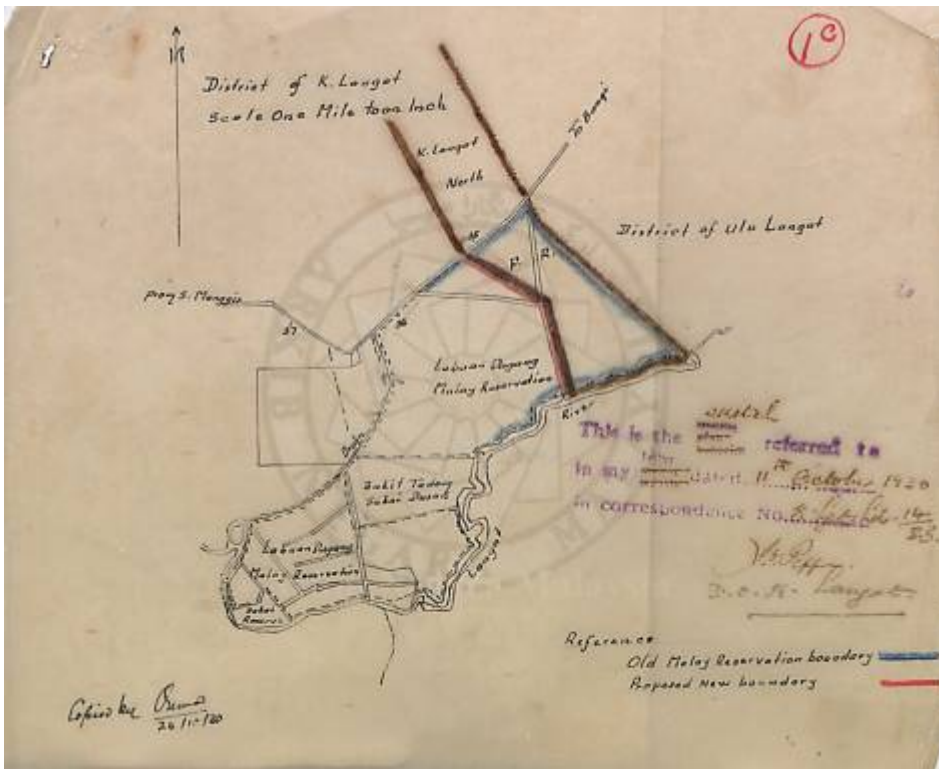 1c
N
District of K. Langat
Scale One Mile to an Inch
K. Langat
North
To Bangi
District of Ulu Langat
From S. Manggis
37
36
35
F. R.
Labuan Dagang
Malay Reservation
River
Langat
Bukit Tadom
Sakai
Labuan Dagang
Malay Reservation
Sakai
Reserve
This is the sketch referred to
in my letter dated 11th October 1920
in correspondence No.
D.O. K. Langat
Reference
Old Malay Reservation boundary
Proposed New boundary
Copied by